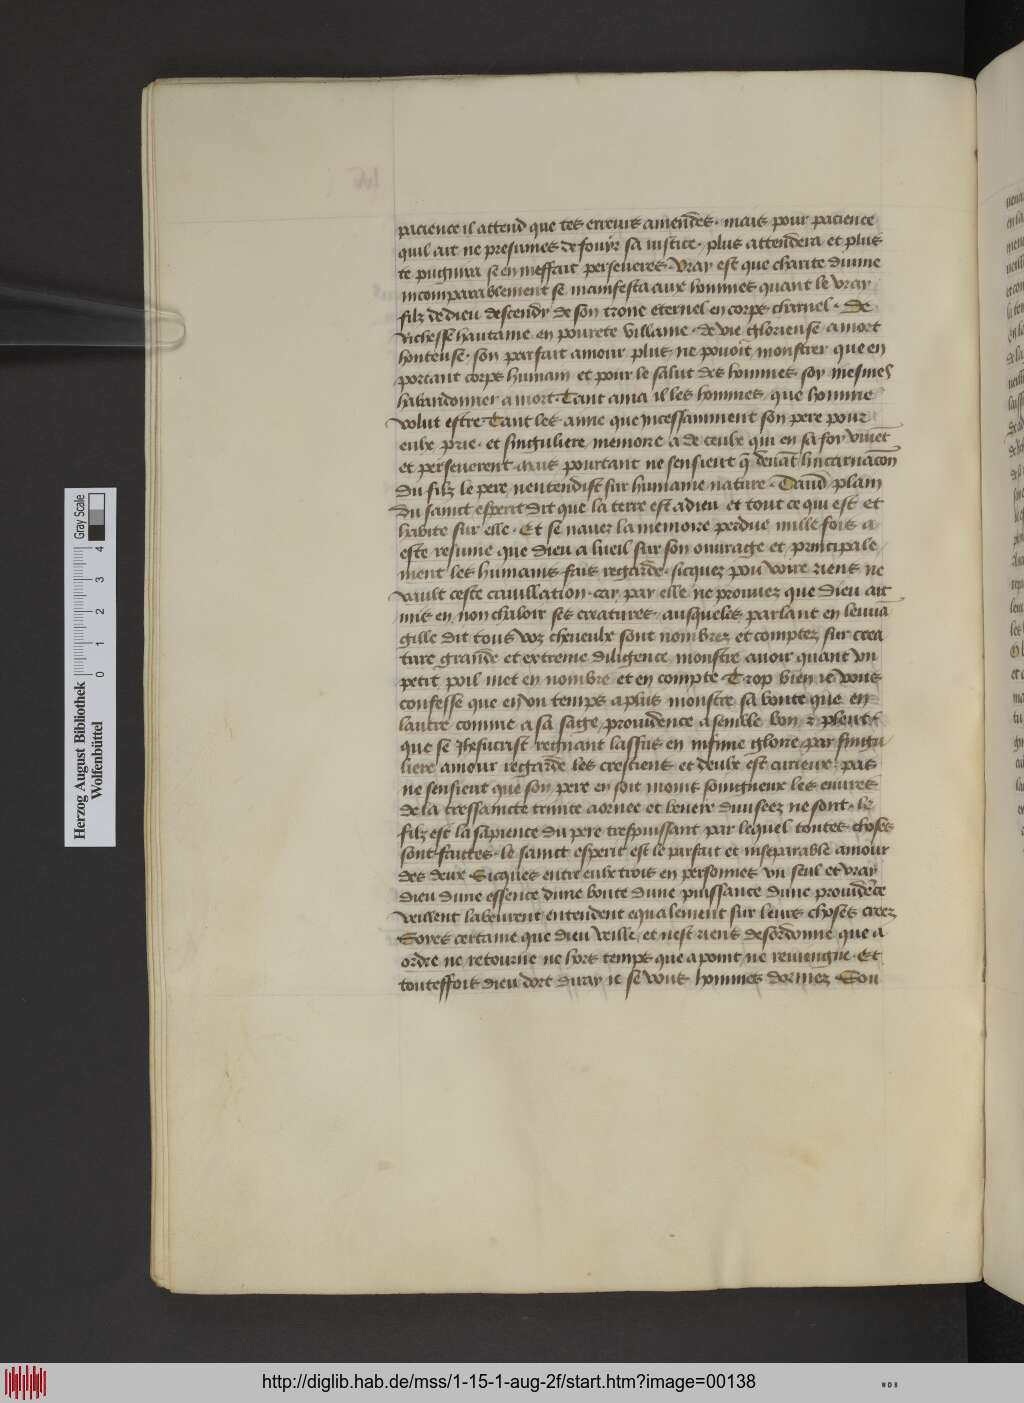 pacience il attend que tes erreurs amendes · mais pour pacience
quil ait ne presumes de fouyr sa iustice · plus attendera et plus
te pugnira se en meffait perseueres · Vray est que charite diuine
incomparablement se manifesta aux hommes quant le vray
filz de dieu descendy de son trone eternel en corps charnel · De
richesse haultaine en pourete villaine · de vie glorieuse a mort
honteuse · son parfait amour plus ne pouoit monstrer que en
portant corps humain et pour le salut des hommes soy mesmes
habandonner a mort · Tant ama il les hommes que homme
volut estre Tant les aime que incessamment son pere pour
eulx prie · et singuliere memoire a de ceulx qui en sa foy viuēt
et perseuerent mais pourtant ne sensieut q̄ deuāt lincarnacōn
du filz le pere nentendist sur humaine nature · Dauid plain
du sainct esperit dit que la terre est a dieu et tout ce qui est et
habite sur elle · Et se nauez la memoire perdue mille fois a
este resume que dieu a lueil sur son ouurage et principale
ment les humains fais regarde · sicques pou voire riens ne
vault ceste cauillation · car par elle ne prouuez que dieu ait
mis en non chaloir ses creatures · ausqueles parlant en leuua
gille dit tous voz cheueulx sont nombrez et comptez sur crea
ture grande et extreme diligence monstre auoir quant vn
petit poil met en nombre et en compte Trop bien ie vous
confesse que en vn temps a plus monstre sa bonte que en
lautre comme a sa sage prouidence a semble bon · et pleut ·
que se Jhesucrist regnant lassus en infinie gloire par singu
liere amour regarde les crestiens et deulx est curieux pas
ne sensieut que son pere en soit moins soingneux les euures
de la tressaincte trinite aornee et leuere diuiseez ne sont · le
filz est la sapience du pere trespuissant par lequel toutes choses
sont faictes · le sainct esperit est le parfait et inseparable amour
des deux · Sicques entre eulx trois en personnes vn seul et vray
dieu dune essence dune bonte dune puissance dune prouidēce
veillent labeurent entendent equalement sur leurs choses creez
Sores certaine que dieu veille et nest riens desordonne que a
ordre ne retourne ne hors temps que a point ne reuiengne · Et
touteffois dieu dort diray ie se vous hommes dormez Son
Herzog August Bibliothek
Wolfenbüttel
0 1 2 3 4
Gray Scale
http://diglib.hab.de/mss/1-15-1-aug-2f/start.htm?image=00138